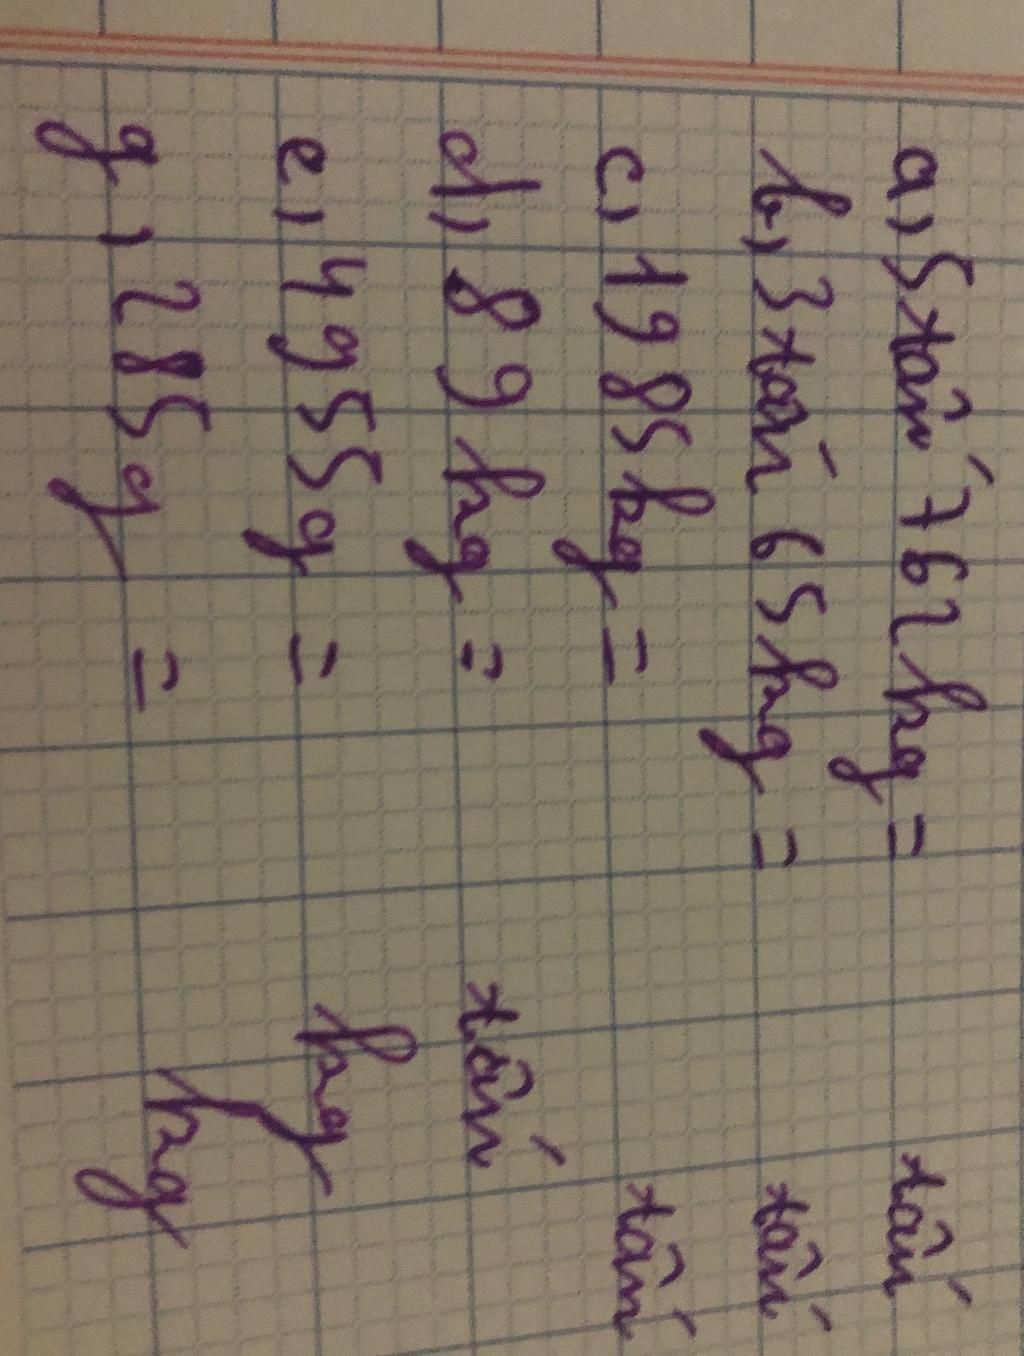 a, 5 tấn 762 kg = tấn
b, 3 tấn 65 kg = tấn
c, 1985 kg = tấn
d, 89 kg = tấn
e, 4955g = kg
g, 285g = kg